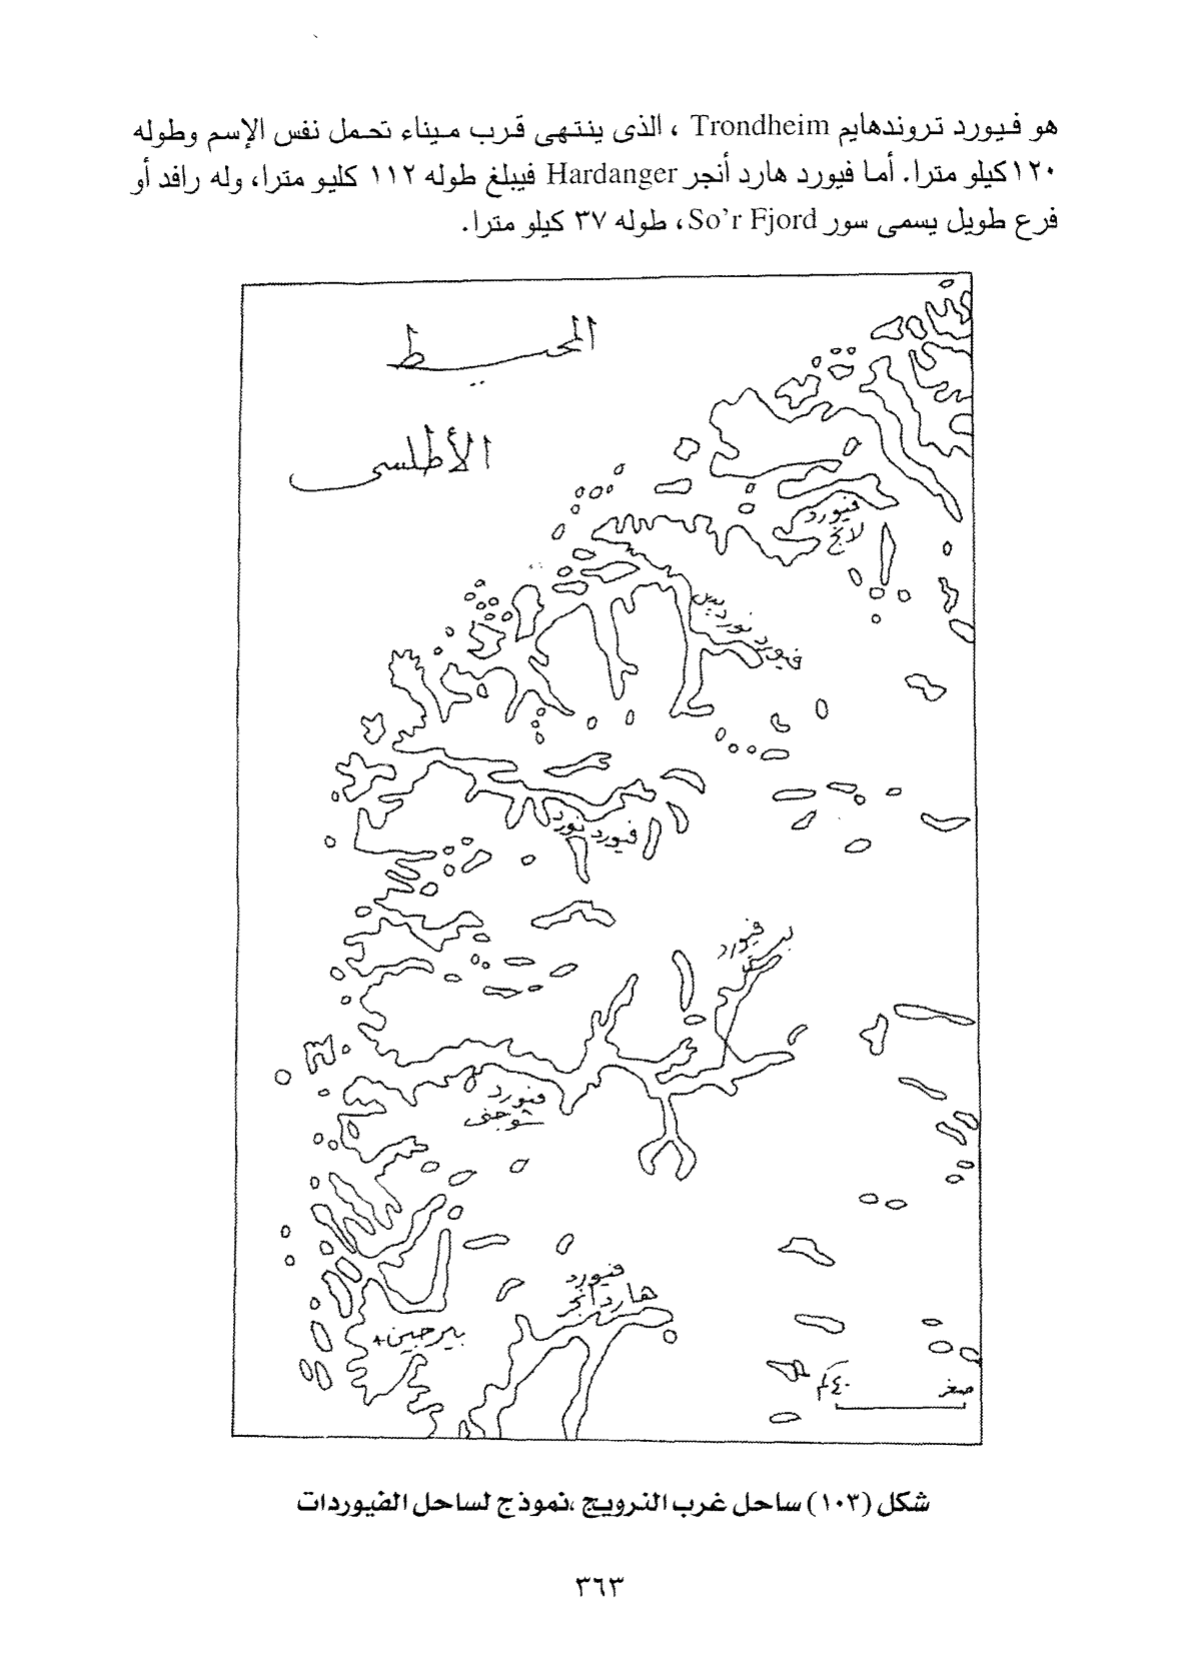 هو فيورد تروندهايم Trondheim ، الذى ينتهى قرب ميناء تحمل نفس الإسم وطوله
١٢٠كيلو مترا. أما فيورد هارد أنجر Hardanger فيبلغ طوله ١١٢ كليو مترا، وله رافد أو
فرع طويل يسمى سور So’r Fjord، طوله ٣٧ كيلو مترا.
المحيط
الأطلسى
فيورد
لانج
فيورد نورديس
فيورد نورد
فيورد
فيورد
سوجنى
فيورد
هاردانجر
بيرجين
صفر
٤٠كم
شكل (١٠٣) ساحل غرب النرويج ،نموذج لساحل الفيوردات
٣٦٣